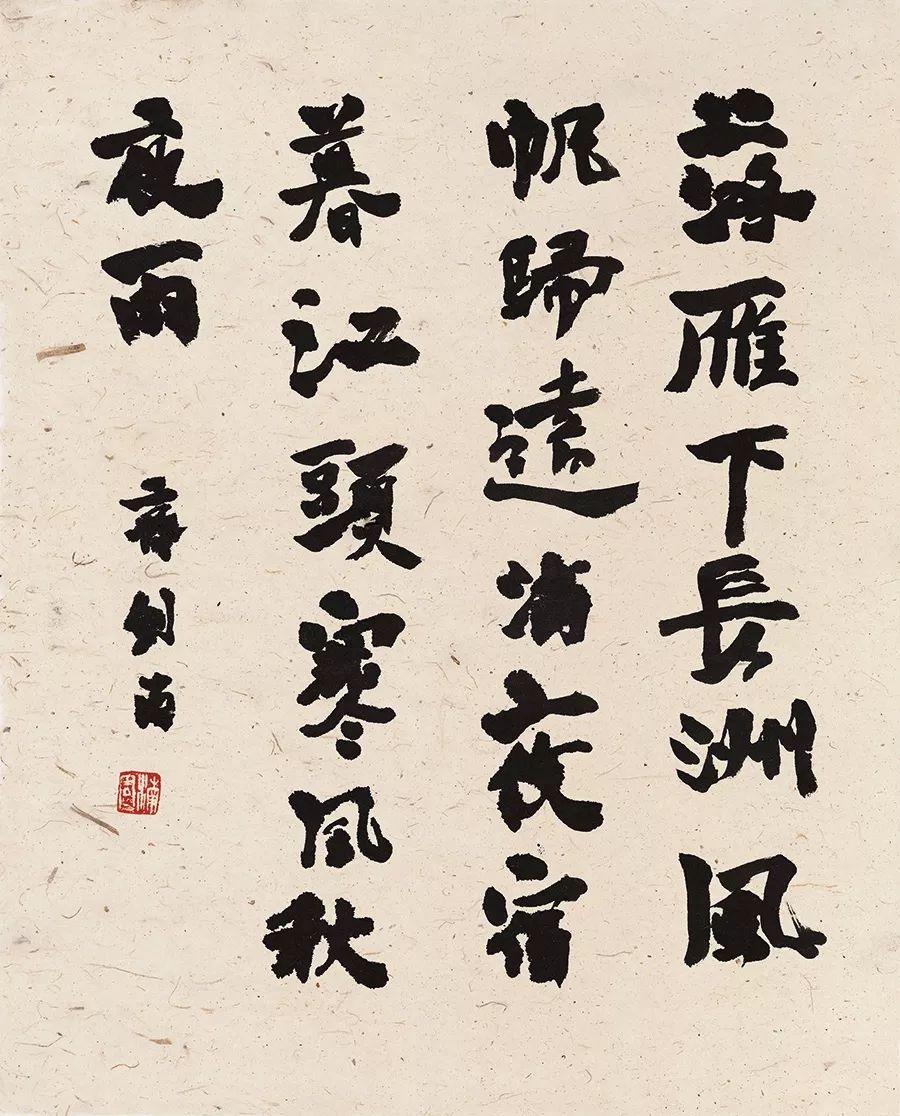 落雁下長洲風
帆歸遠浦夜宿
暮江頭寒風秋
夜雨
齊劍南